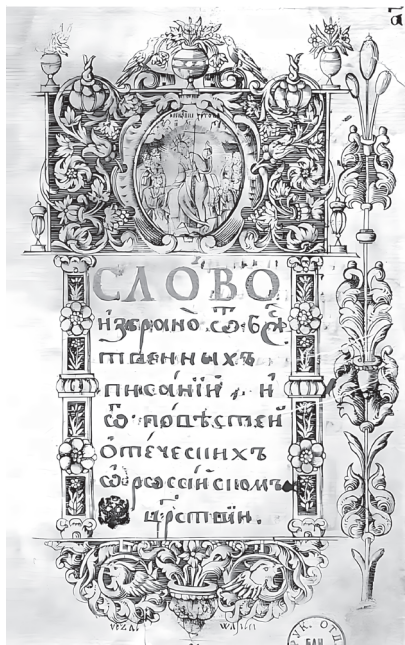 СЛОВО
и҆збрано̀ ѿ бж҃е
ственныхъ
писанїй , и
ѿ повѣстей
ѻ҆теческихъ
ѡ҆ россїйскомъ
црⷭ҇твїи .
РУК. ОТД.
БАН